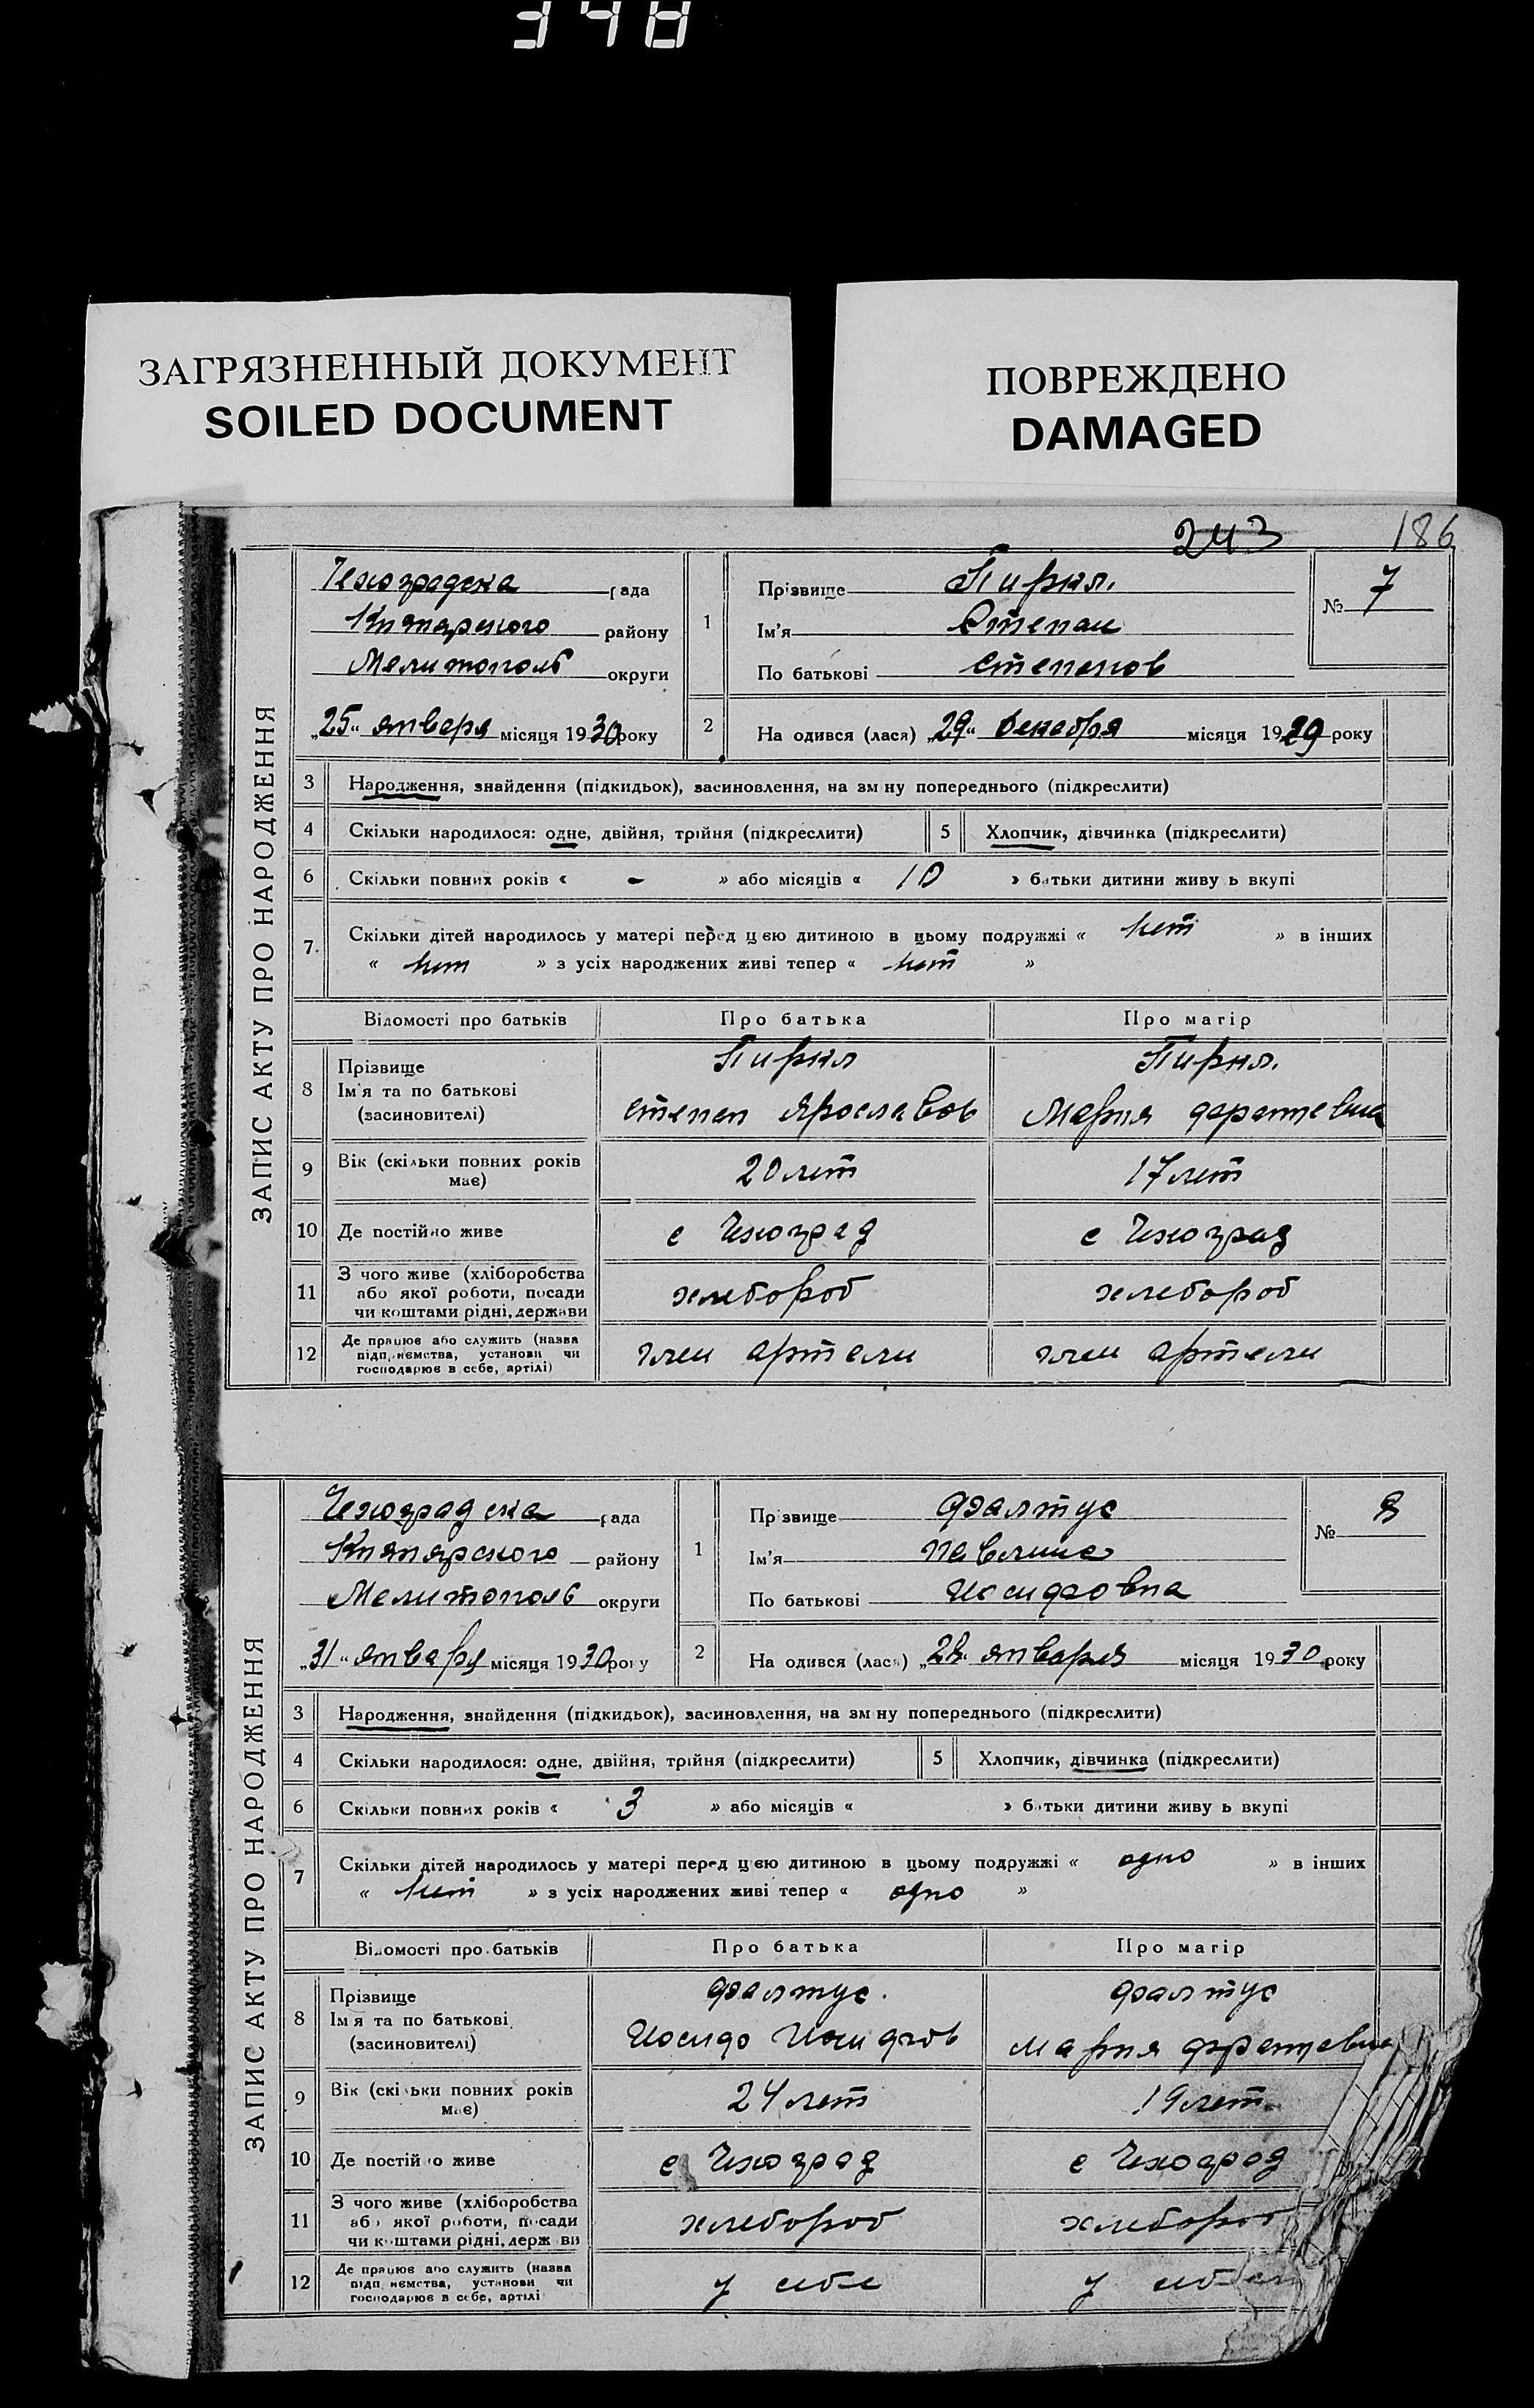 348
ЗАГРЯЗНЕННЫЙ ДОКУМЕНТ
SOILED DOCUMENT
ПОВРЕЖДЕНО
DAMAGED
243
186
ЗАПИС АКТУ ПРО НАРОДЖЕННЯ
Чехоградска рада
района Мелитополь округи
„25“ января місяця 1930 року
1 Прізвище Пиркл.
Ім'я Степан
По батькові Степанов
№ 7
2 На одився (лася) „29“ декабря місяця 1929 року
3 Народження, знайдення (підкидьок), засиновлення, на зм ну попереднього (підкреслити)
4 Скільки народилося: одне, двійня, трійня (підкреслити)
5 Хлопчик, дівчинка (підкреслити)
6 Скільки повних років « - » або місяців « 10 » батьки дитини живу ь вкупі
7. Скільки дітей народилось у матері перед цією дитиною в цьому подружжі « нет » в інших
« нет » з усіх народжених живі тепер « нет »
Відомості про батьків Про батька Про матір
8 Прізвище Пиркл Пиркл.
Ім'я та по батькові
(засиновителі) Степан Ярославов Мария
9 Вік (скільки повних років має) 20 лет 17 лет
10 Де постійно живе с Чехоград с Чехоград
11 З чого живе (хліборобства або якої роботи, посади чи коштами рідні, держави хлебороб хлебороб
12 Де працює або служить (назва підприємства, установи чи господарює в себе, артілі) член артели член артели
ЗАПИС АКТУ ПРО НАРОДЖЕННЯ
Чехоградска рада
району
Мелитополь округи
„31“ января місяця 1930 року
1 Пр звище Фалтус
Ім'я Павлина
По батькові Иосифовна
№ 8
2 На одився (лася) „28“ января місяця 1930 року
3 Народження, знайдення (підкидьок), засиновлення, на зм ну попереднього (підкреслити)
4 Скільки народилося: одне, двійня, трійня (підкреслити)
5 Хлопчик, дівчинка (підкреслити)
6 Скільки повних років « 3 » або місяців « » батьки дитини живу ь вкупі
7 Скільки дітей народилось у матері перед цією дитиною в цьому подружжі « одно » в інших
« нет » з усіх народжених живі тепер « одно »
Відомості про батьків Про батька Про матір
8 Прізвище Фалтус. Фалтус
Ім'я та по батькові
(засиновителі) Иосиф Иосифов Мария
9 Вік (скільки повних років має) 24 лет 19 лет
10 Де постійно живе с Чехоград с Чехоград
11 З чого живе (хліборобства або якої роботи, посади чи коштами рідні, держави хлебороб хлебороб
12 Де працює або служить (назва підприємства, установи чи господарює в себе, артілі у себе у